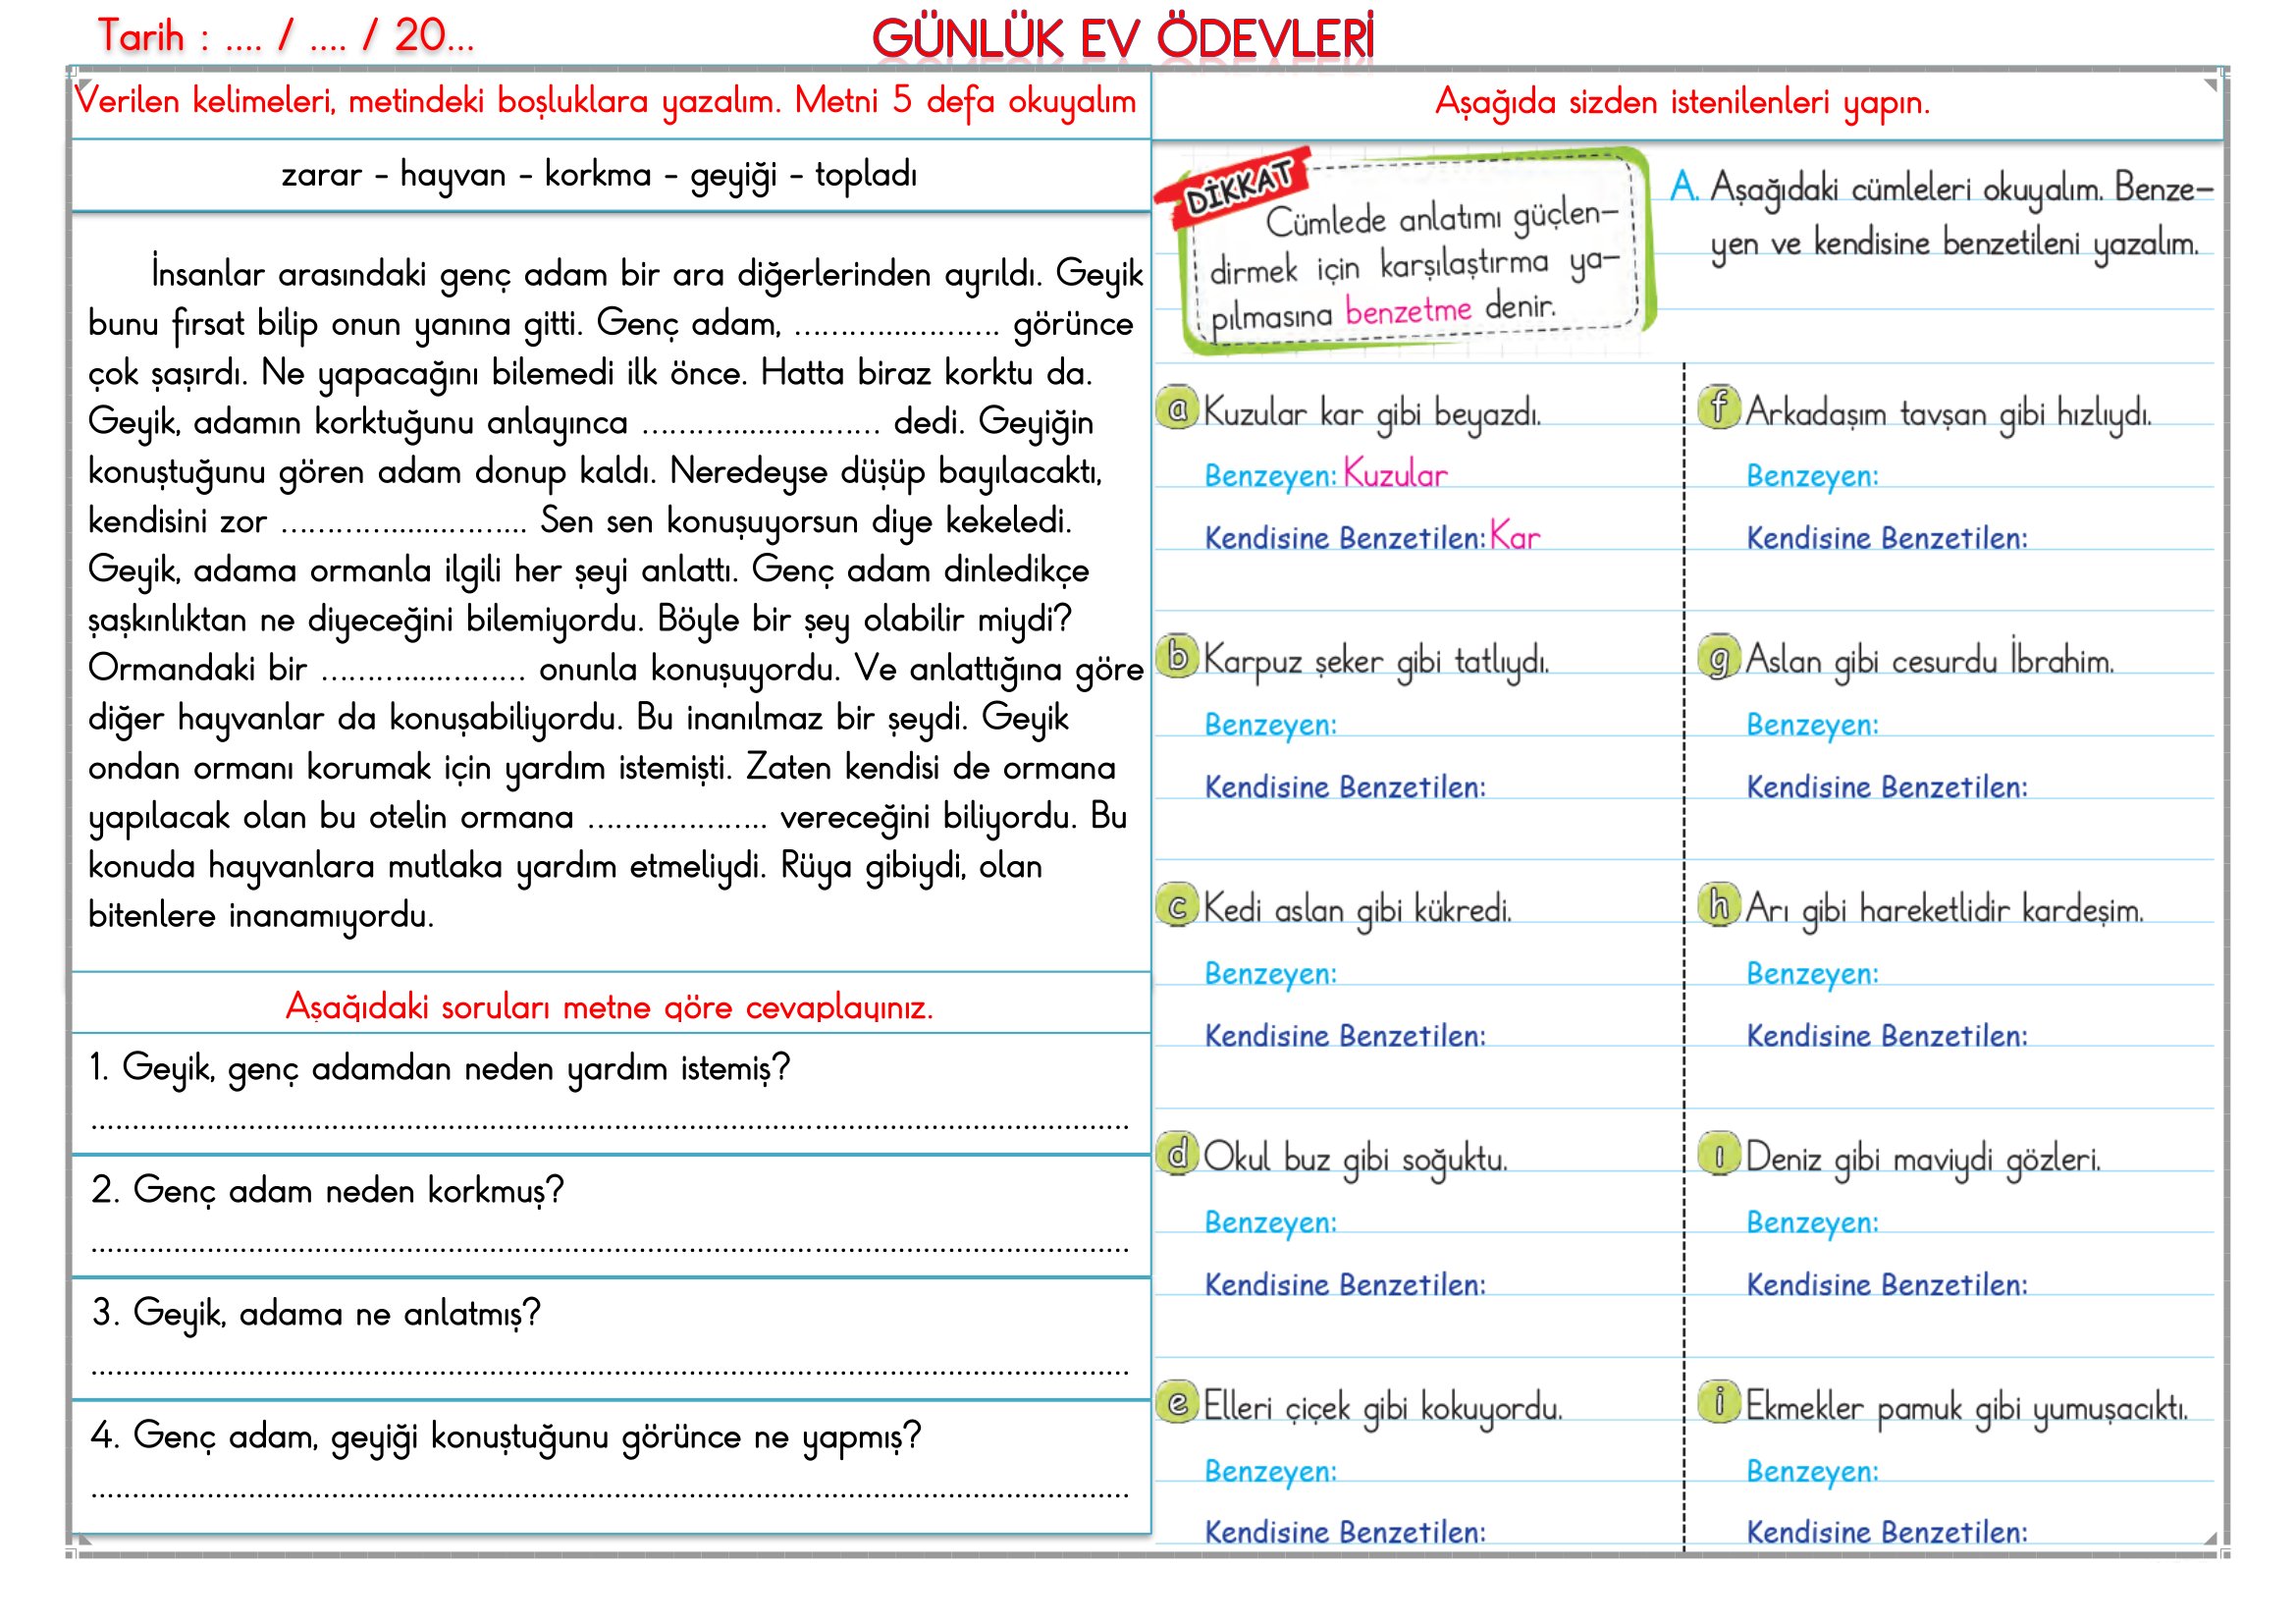 Tarih : .... / .... / 20...
GÜNLÜK EV ÖDEVLERİ
Verilen kelimeleri, metindeki boşluklara yazalım. Metni 5 defa okuyalım
zarar - hayvan - korkma - geyiği - topladı
İnsanlar arasındaki genç adam bir ara diğerlerinden ayrıldı. Geyik
bunu fırsat bilip onun yanına gitti. Genç adam, ........................ görünce
çok şaşırdı. Ne yapacağını bilemedi ilk önce. Hatta biraz korktu da.
Geyik, adamın korktuğunu anlayınca ............................ dedi. Geyiğin
konuştuğunu gören adam donup kaldı. Neredeyse düşüp bayılacaktı,
kendisini zor ............................. Sen sen konuşuyorsun diye kekeledi.
Geyik, adama ormanla ilgili her şeyi anlattı. Genç adam dinledikçe
şaşkınlıktan ne diyeceğini bilemiyordu. Böyle bir şey olabilir miydi?
Ormandaki bir ........................ onunla konuşuyordu. Ve anlattığına göre
diğer hayvanlar da konuşabiliyordu. Bu inanılmaz bir şeydi. Geyik
ondan ormanı korumak için yardım istemişti. Zaten kendisi de ormana
yapılacak olan bu otelin ormana .................... vereceğini biliyordu. Bu
konuda hayvanlara mutlaka yardım etmeliydi. Rüya gibiydi, olan
bitenlere inanamıyordu.
Aşağıdaki soruları metne göre cevaplayınız.
1. Geyik, genç adamdan neden yardım istemiş?
................................................................................
2. Genç adam neden korkmuş?
................................................................................
3. Geyik, adama ne anlatmış?
................................................................................
4. Genç adam, geyiği konuştuğunu görünce ne yapmış?
................................................................................
Aşağıda sizden istenilenleri yapın.
DİKKAT
Cümlede anlatımı güçlen-
dirmek için karşılaştırma ya-
pılmasına benzetme denir.
A. Aşağıdaki cümleleri okuyalım. Benze-
yen ve kendisine benzetileni yazalım.
a Kuzular kar gibi beyazdı.
Benzeyen: Kuzular
Kendisine Benzetilen: Kar
b Karpuz şeker gibi tatlıydı.
Benzeyen:
Kendisine Benzetilen:
c Kedi aslan gibi kükredi.
Benzeyen:
Kendisine Benzetilen:
d Okul buz gibi soğuktu.
Benzeyen:
Kendisine Benzetilen:
e Elleri çiçek gibi kokuyordu.
Benzeyen:
Kendisine Benzetilen:
f Arkadaşım tavşan gibi hızlıydı.
Benzeyen:
Kendisine Benzetilen:
g Aslan gibi cesurdu İbrahim.
Benzeyen:
Kendisine Benzetilen:
h Arı gibi hareketlidir kardeşim.
Benzeyen:
Kendisine Benzetilen:
ı Deniz gibi maviydi gözleri.
Benzeyen:
Kendisine Benzetilen:
i Ekmekler pamuk gibi yumuşacıktı.
Benzeyen:
Kendisine Benzetilen: